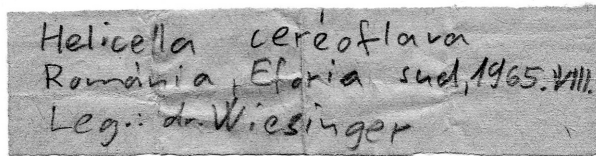 Helicella ceréoflava
Románia, Eforia sud, 1965.VIII.
Leg.: dr. Wiesinger